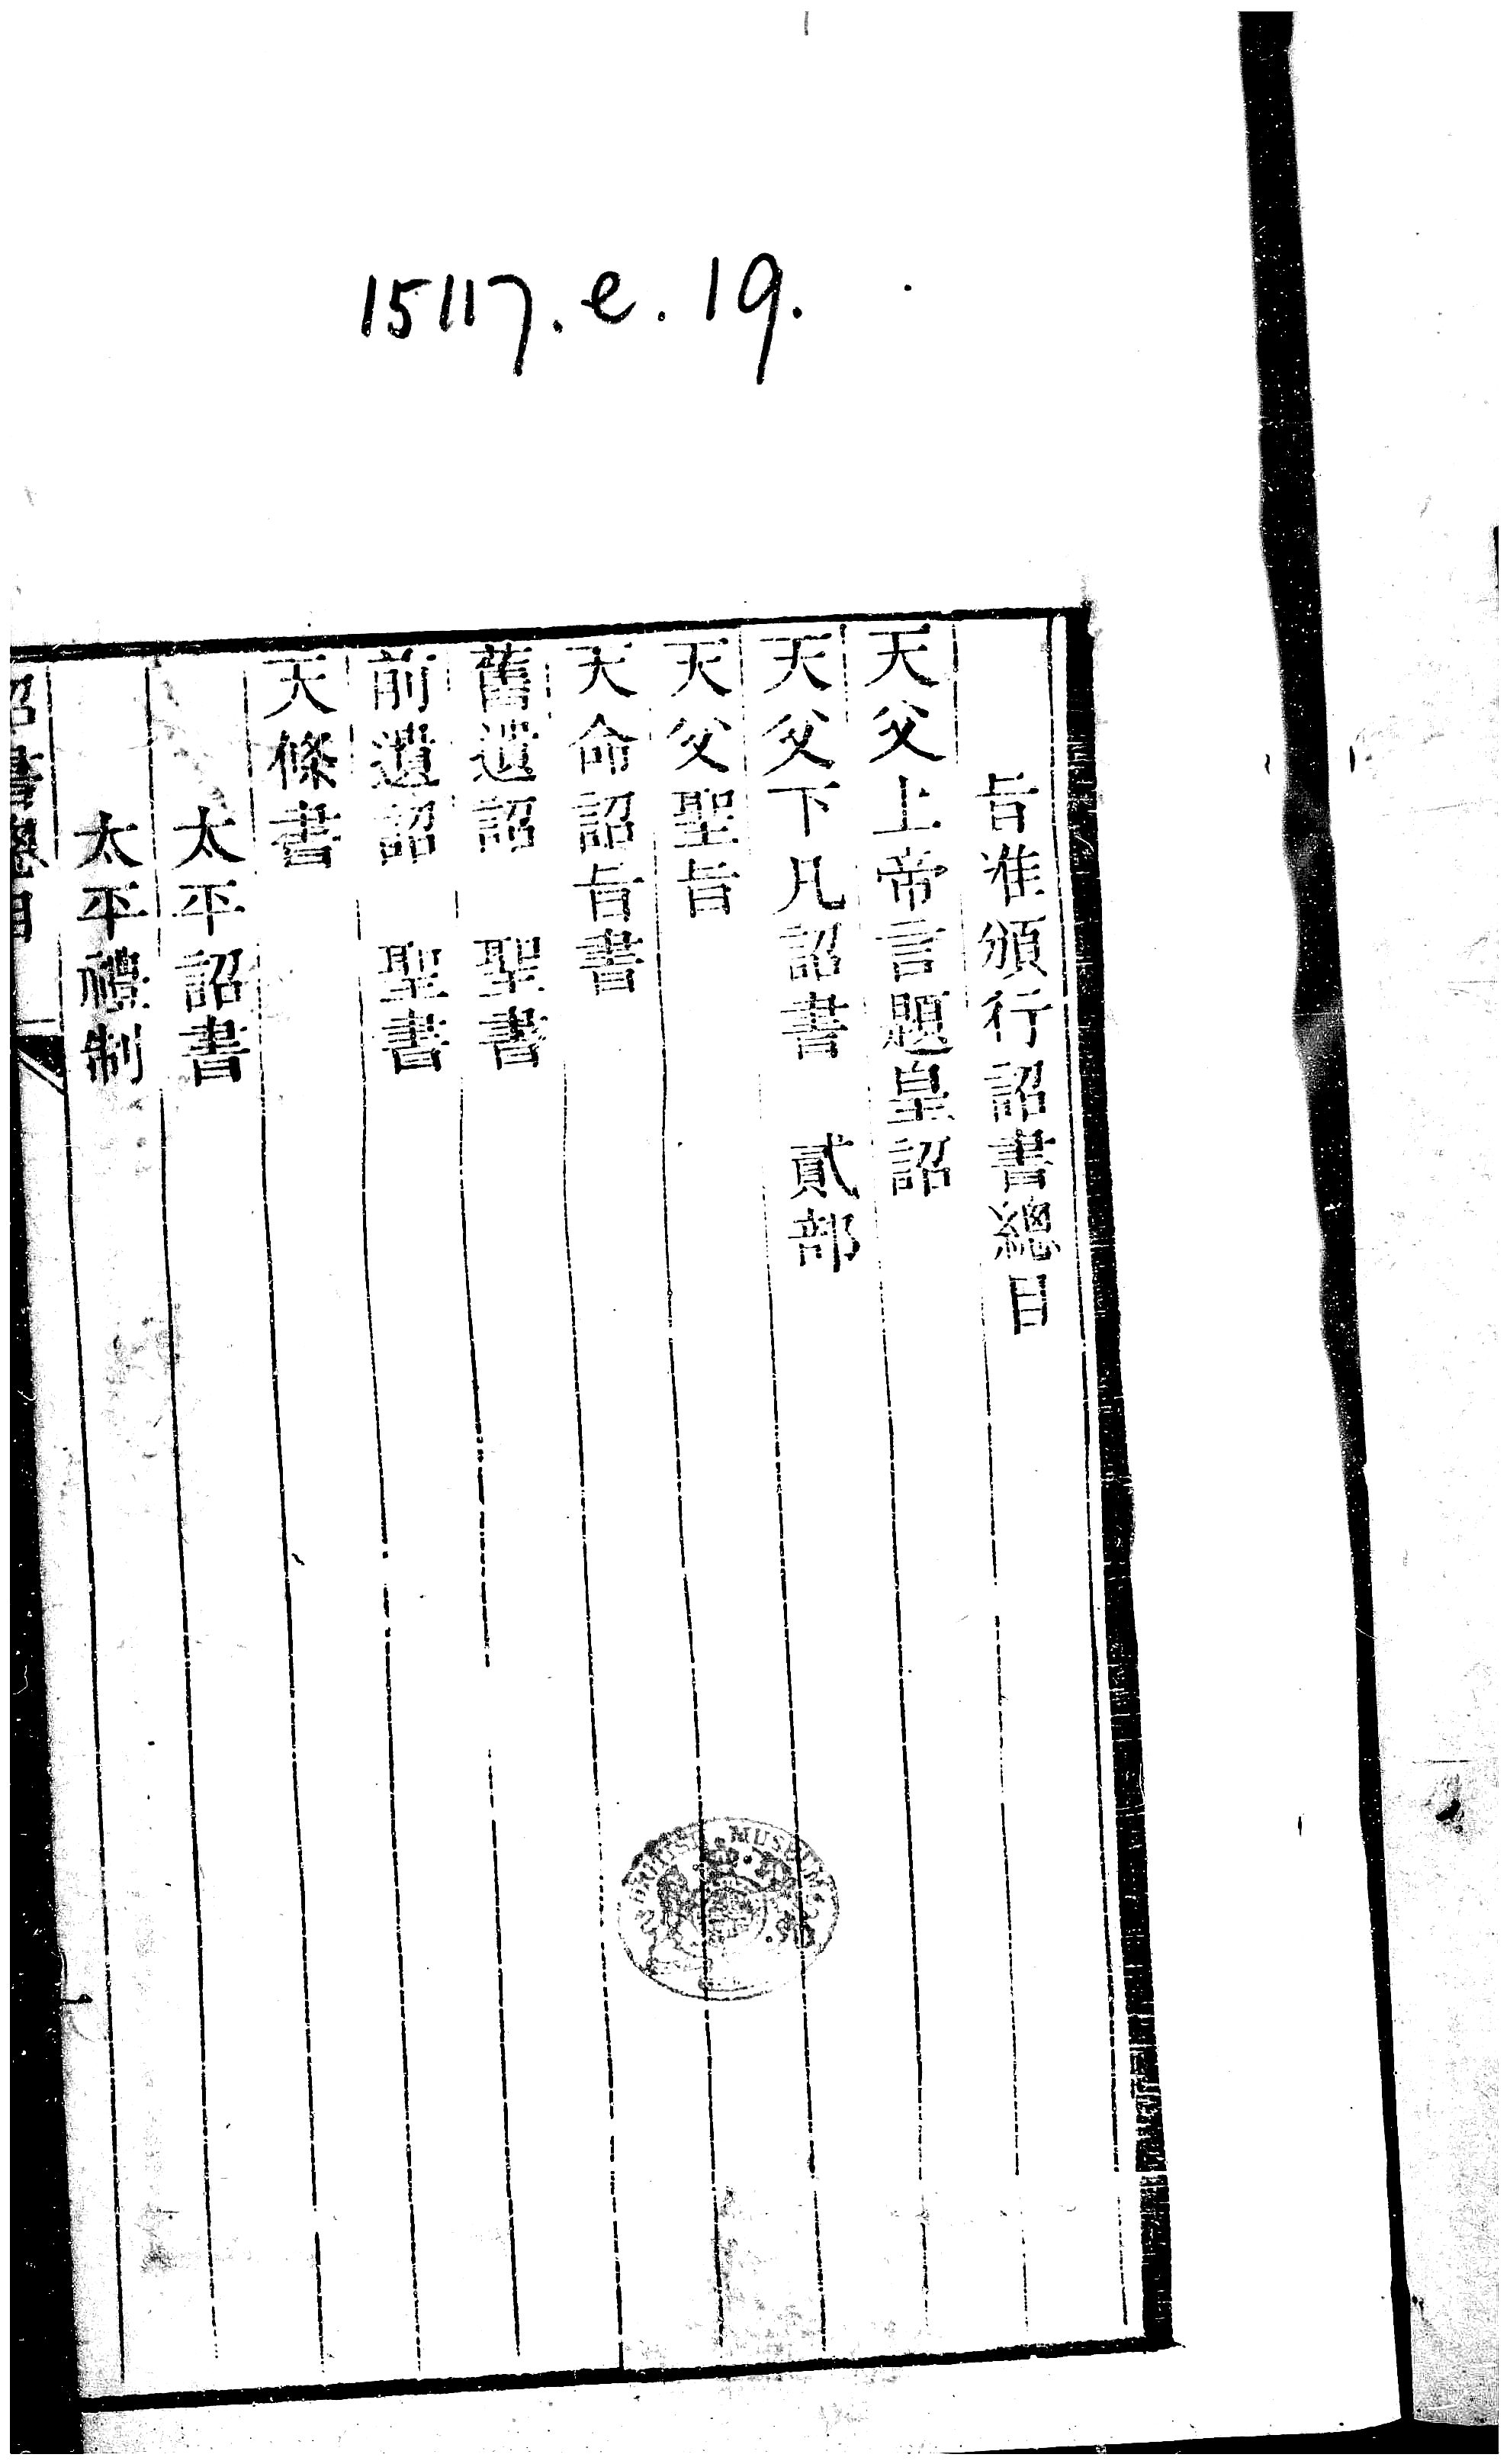 15117.e.19.
旨准頒行詔書總目
天父上帝言題皇詔
天父下凡詔書　貳部
天父聖旨
天命詔旨書
舊遺詔　聖書
前遺詔　聖書
天條書
太平詔書
太平禮制
詔書總目
BRITISH MUSEUM